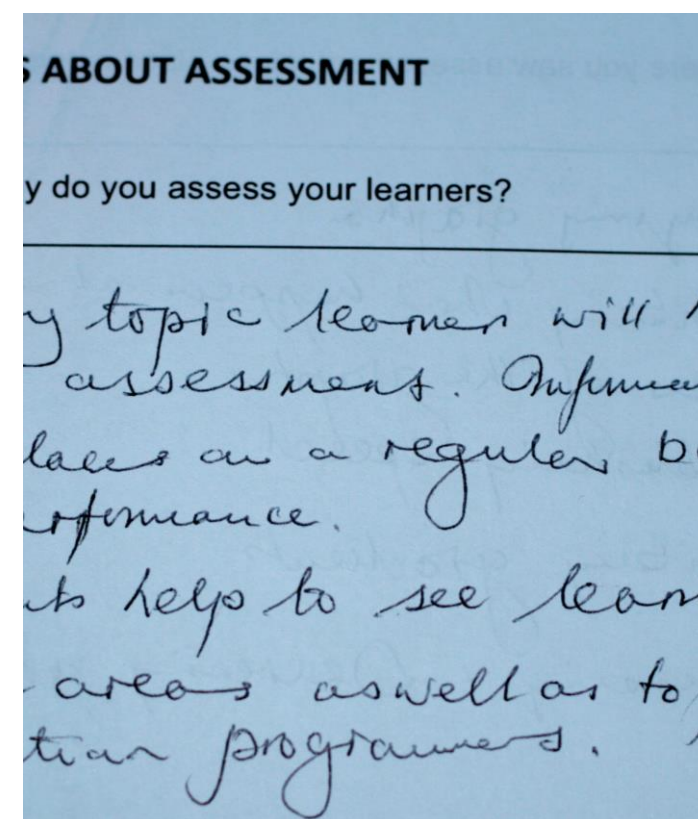 S ABOUT ASSESSMENT
y do you assess your learners?
y topic learner will
assessment. Informa
laces on a regular b
erformance.
ts help to see learn
areas aswell as to
tian programmes.